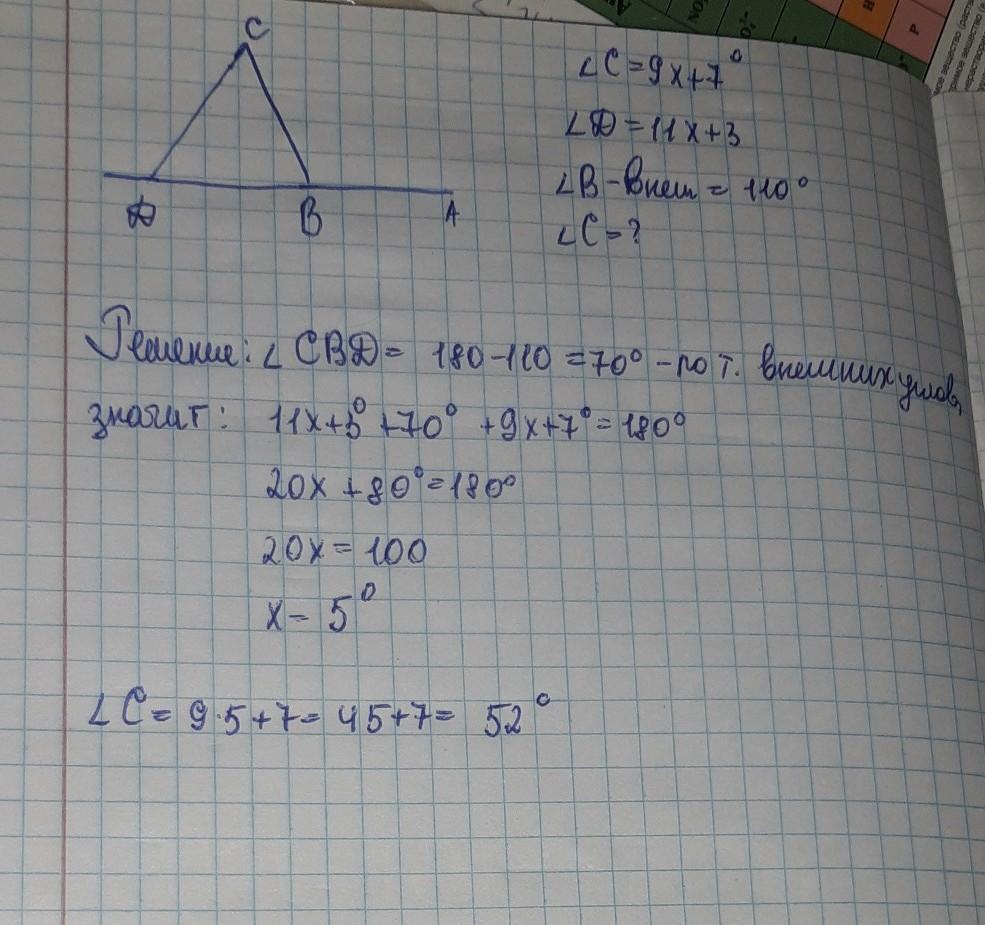 C
D B A
∠C=9x+7°
∠D=11x+3
∠B-внеш=110°
∠C=?
Решение: ∠CBD= 180-110=70° -по т. внешних углов,
значит: 11x+3°+70°+9x+7°=180°
20x+80°=180°
20x=100
x=5°
∠C=9·5+7=45+7= 52°